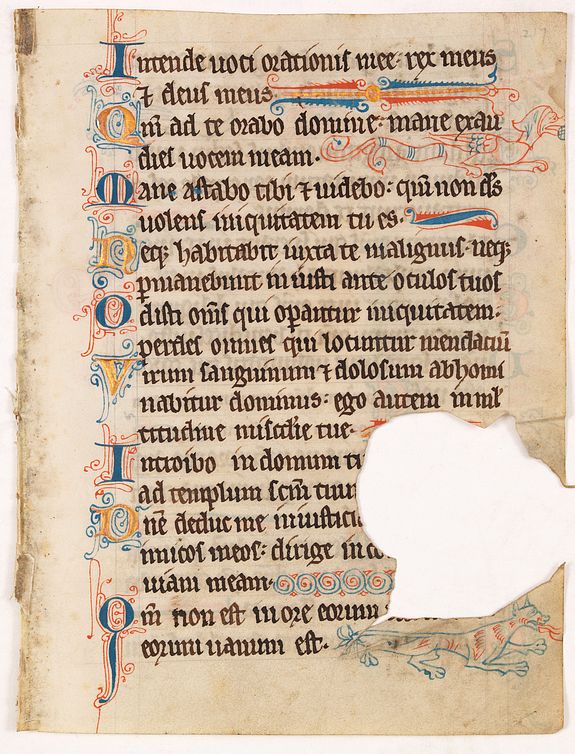 Intende uoci orationis mee: rex meus
⁊ deus meus.
Qm̄ ad te orabo domine: mane exau
dies uocem meam.
Mane astabo tibi ⁊ uidebo: qm̄ non ds̄
uolens iniquitatem tu es.
Neq; habitabit iuxta te malignus: neq;
ꝑmanebunt iniusti ante oculos tuos
Odisti om̄s qui oꝑantur iniquitatem:
perdes omnes qui locuntur mendaciū
Virum sanguinum ⁊ dolosum abhomi
nabitur dominus: ego autem in ml̄
titudine misc̄die tue.
Introibo in domum
ad templum sc̄m tuum
Dn̄e deduc me in iusticia
micos meos: dirige in
uiam meam.
Qm̄ non est in ore eorum
eorum uanum est.